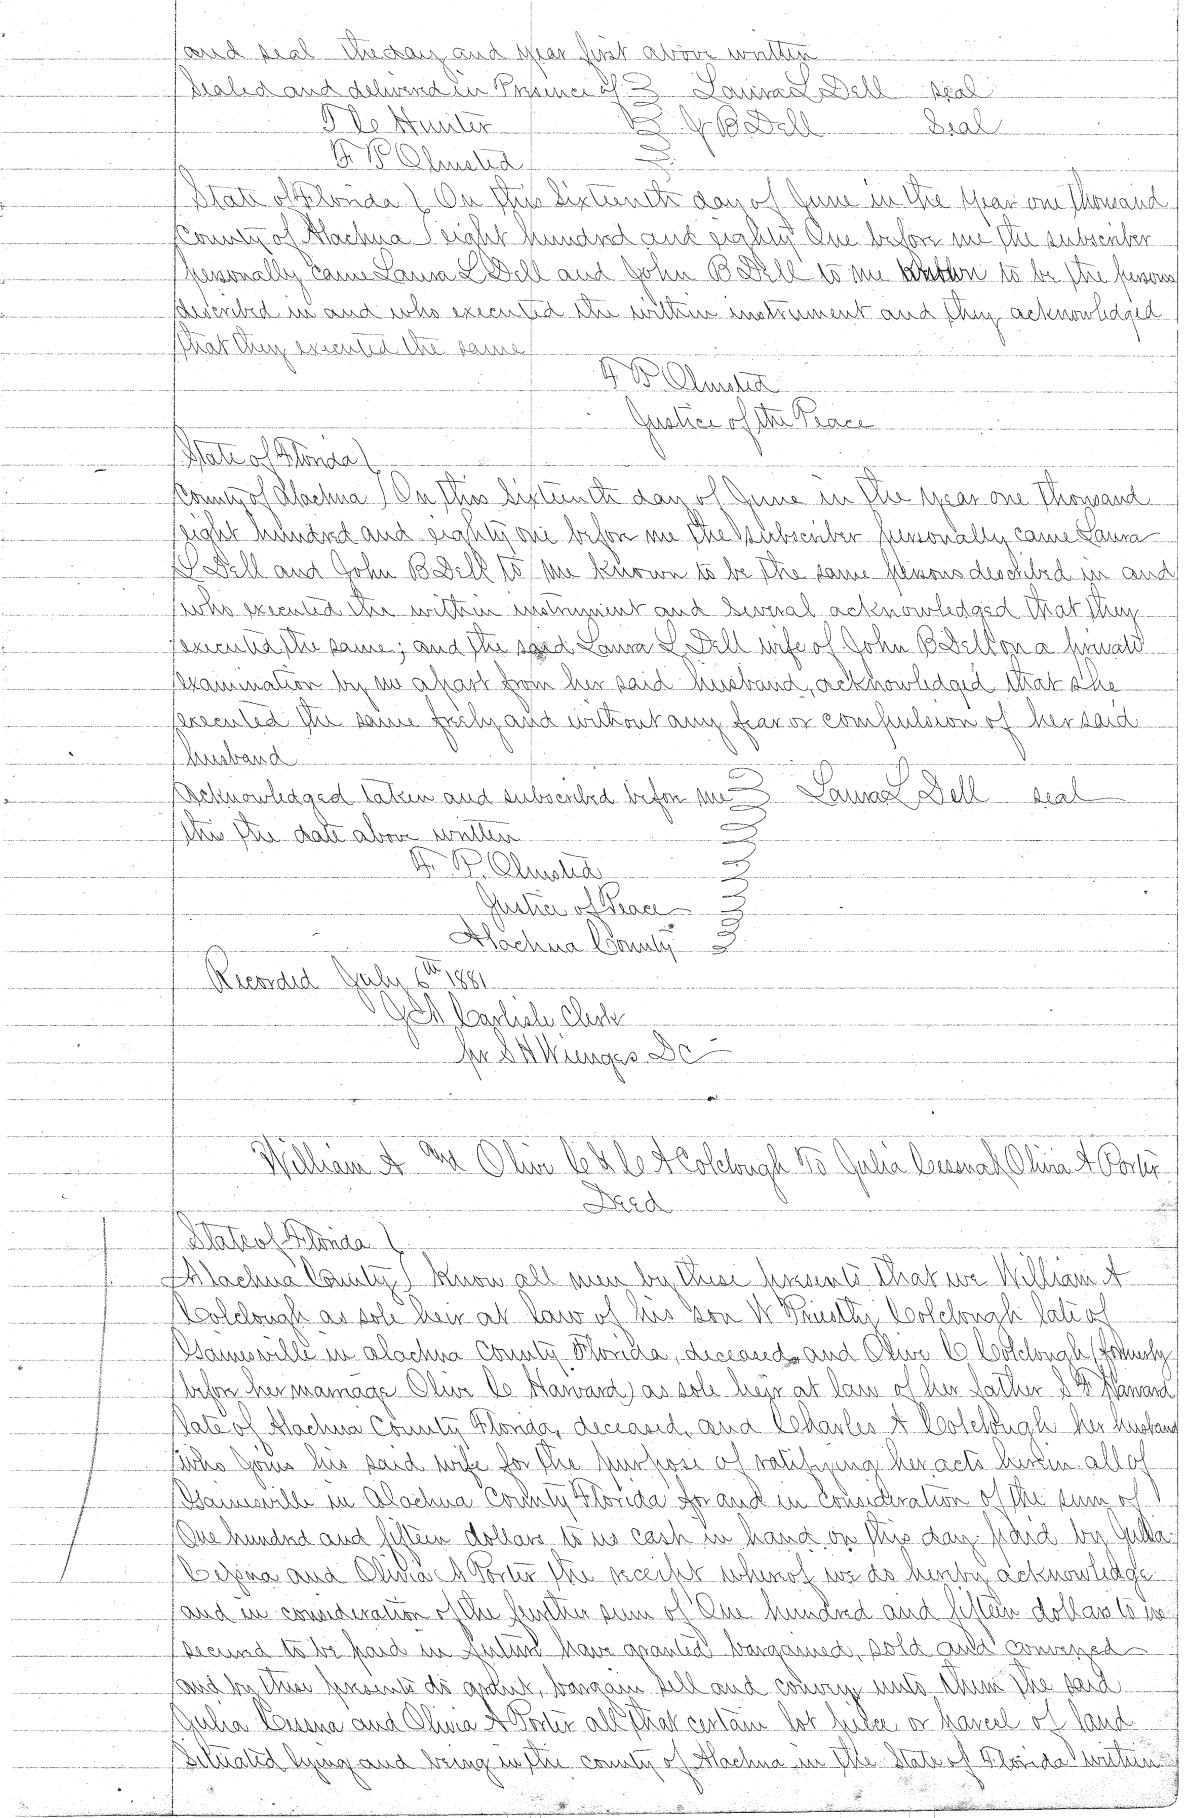 and seal the day and year first above written
Sealed and delivered in Presince of Laura L Dell seal
T C Hunter J B Dell Seal
F P Olmsted
State of Florida On this Sixteenth day of June in the year one thousand
County of Alachua eight hundred and eighty One before me the subscriber
personally came Laura L Dell and John B Dell to me known to be the persons
described in and who executed the within instrument and they acknowledged
that they executed the same
F P Olmsted
Justice of the Peace
State of Florida
County of Alachua On this Sixteenth day of June in the year one thousand
eight hundred and eighty one before me the subscriber personally came Laura
L Dell and John B Dell to me known to be the same persons described in and
who executed the within instrument and several acknowledged that they
executed the same; and the said Laura L Dell wife of John B Dell on a private
examination by me apart from her said husband, acknowledged that she
executed the same freely and without any fear or compulsion of her said
husband
Acknowledged taken and subscribed before me Laura L Dell seal
this the date above written
F. P. Olmsted
Justice of Peace
Alachua County
Recorded July 6th 1881
J A Carlisle Clerk
pr S H Wienges D C
William A and Olive C & C A Colclough To Julia Cessnah Olivia A Porter
Deed
State of Florida
Alachua County Know all men by these presents that we William A
Colclough as sole heir at law of his son W Priestly Colclough late of
Gainesville in Alachua County Florida, deceased, and Olive C Colclough (formerly
before her marriage Olive C Harvard) as sole heir at law of her father S F Harvard
late of Alachua County Florida, deceased, and Charles A Colclough her husband
who joins his said wife for the purpose of ratifying her acts herein all of
Gainesville in Alachua County Florida for and in consideration of the sum of
One hundred and fifteen dollars to us cash in hand on this day paid by Julia
Cessna and Olivia A Porter the receipt whereof we do hereby acknowledge
and in consideration of the further sum of One hundred and fifteen dollars to us
secured to be paid in future have granted bargained, sold and conveyed
and by these presents do grant, bargain sell and convey unto them the said
Julia Cessna and Olivia A Porter all that certain lot piece or parcel of land
situated lying and being in the county of Alachua in the State of Florida within